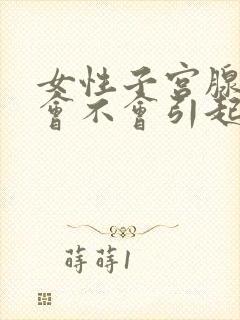 女性子宮腺
會不會引起
蒔蒔1